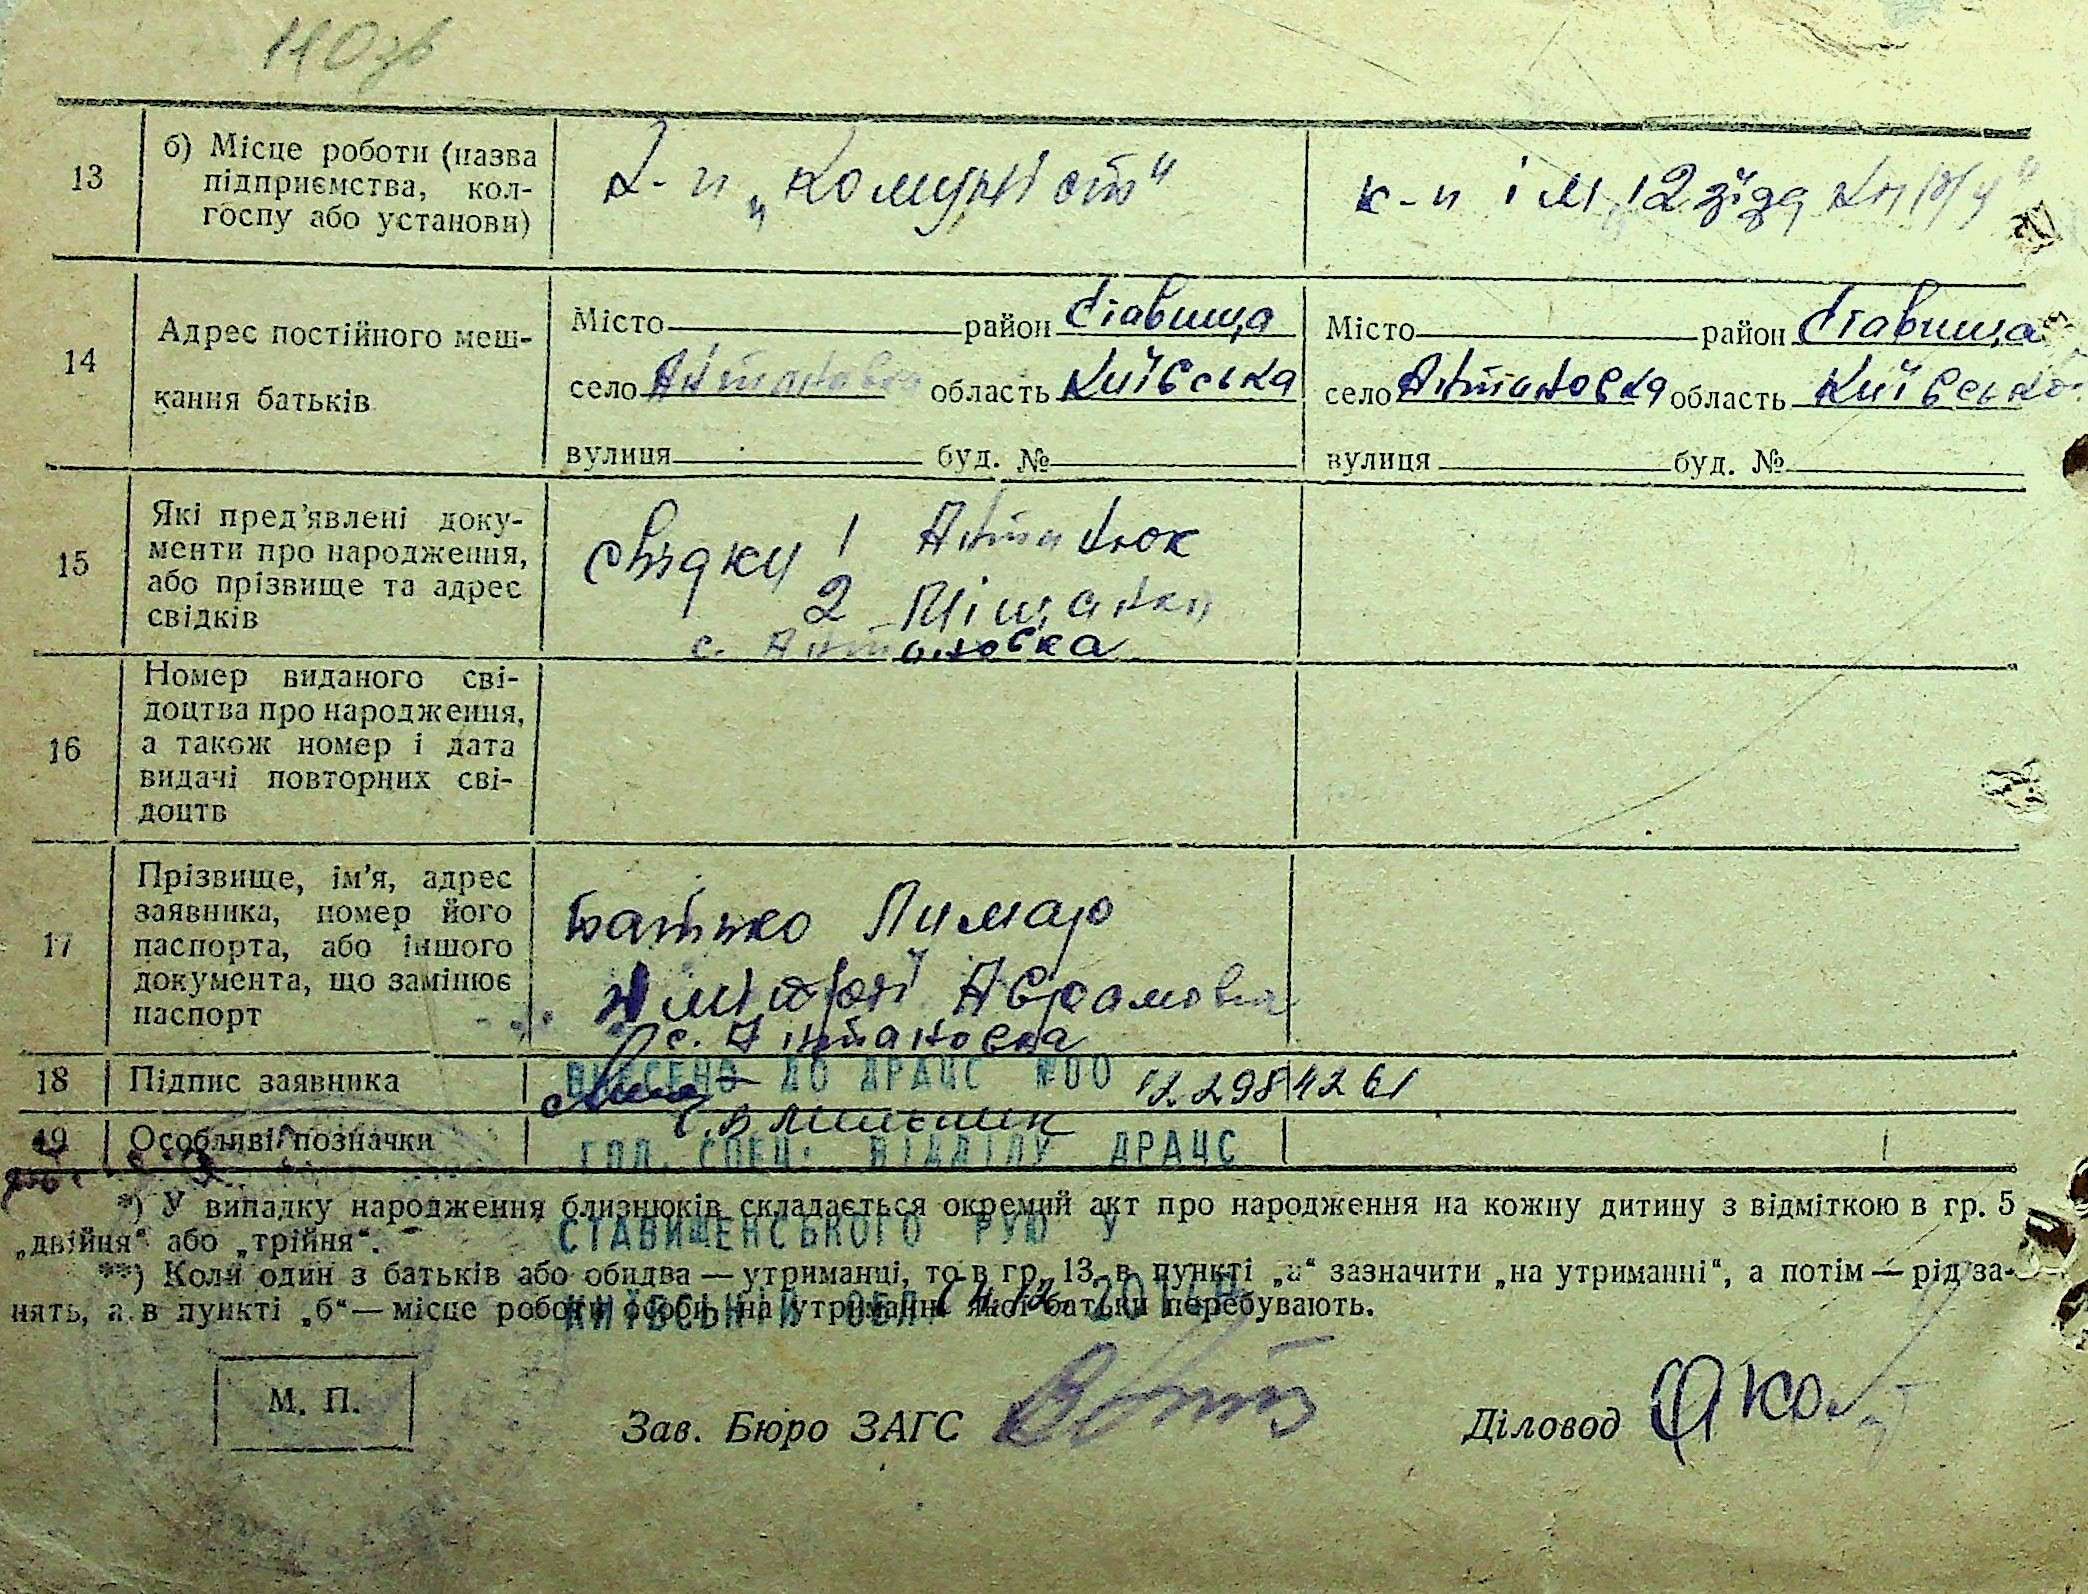 13
б) Місце роботи (назва
підприємства, кол-
госпу або установи)
к-п „Комуніст“
к-п ім. „12 зїзд КП(б)У“
14
Адрес постійного меш-
кання батьків
Місто район Ставища
село Антоновка область Київська
вулиця буд. №
Місто район Ставища
село Антоновка область Київська
вулиця буд. №
15
Які пред’явлені доку-
менти про народження,
або прізвище та адрес
свідків
свідки 1 Антонюк
2 Міщанки
с. Антоновка
16
Номер виданого сві-
доцтва про народження,
а також номер і дата
видачі повторних сві-
доцтв
17
Прізвище, ім’я, адрес
заявника, номер його
паспорта, або іншого
документа, що замінює
паспорт
Батько Лимар
Дмитрой Аврамовка
с. Антоновка
18
Підпис заявника
ВНЕСЕНО ДО ДРАЦС №00
122984261
19
Особливі позначки
ГОЛ. СПЕЦ. ВІДДІЛУ ДРАЦС
*) У випадку народження близнюків складається окремий акт про народження на кожну дитину з відміткою в гр. 5
„двійня“ або „трійня“.
СТАВИЩЕНСЬКОГО РУЮ У
**) Коли один з батьків або обидва — утриманці, то в гр. 13, в пункті „а“ зазначити „на утриманні“, а потім — рід за-
нять, а в пункті „б“ — місце роботи особи, на утриманні якої батьки перебувають.
КИЇВСЬКІЙ ОБЛ.
М. П.
Зав. Бюро ЗАГС
Діловод